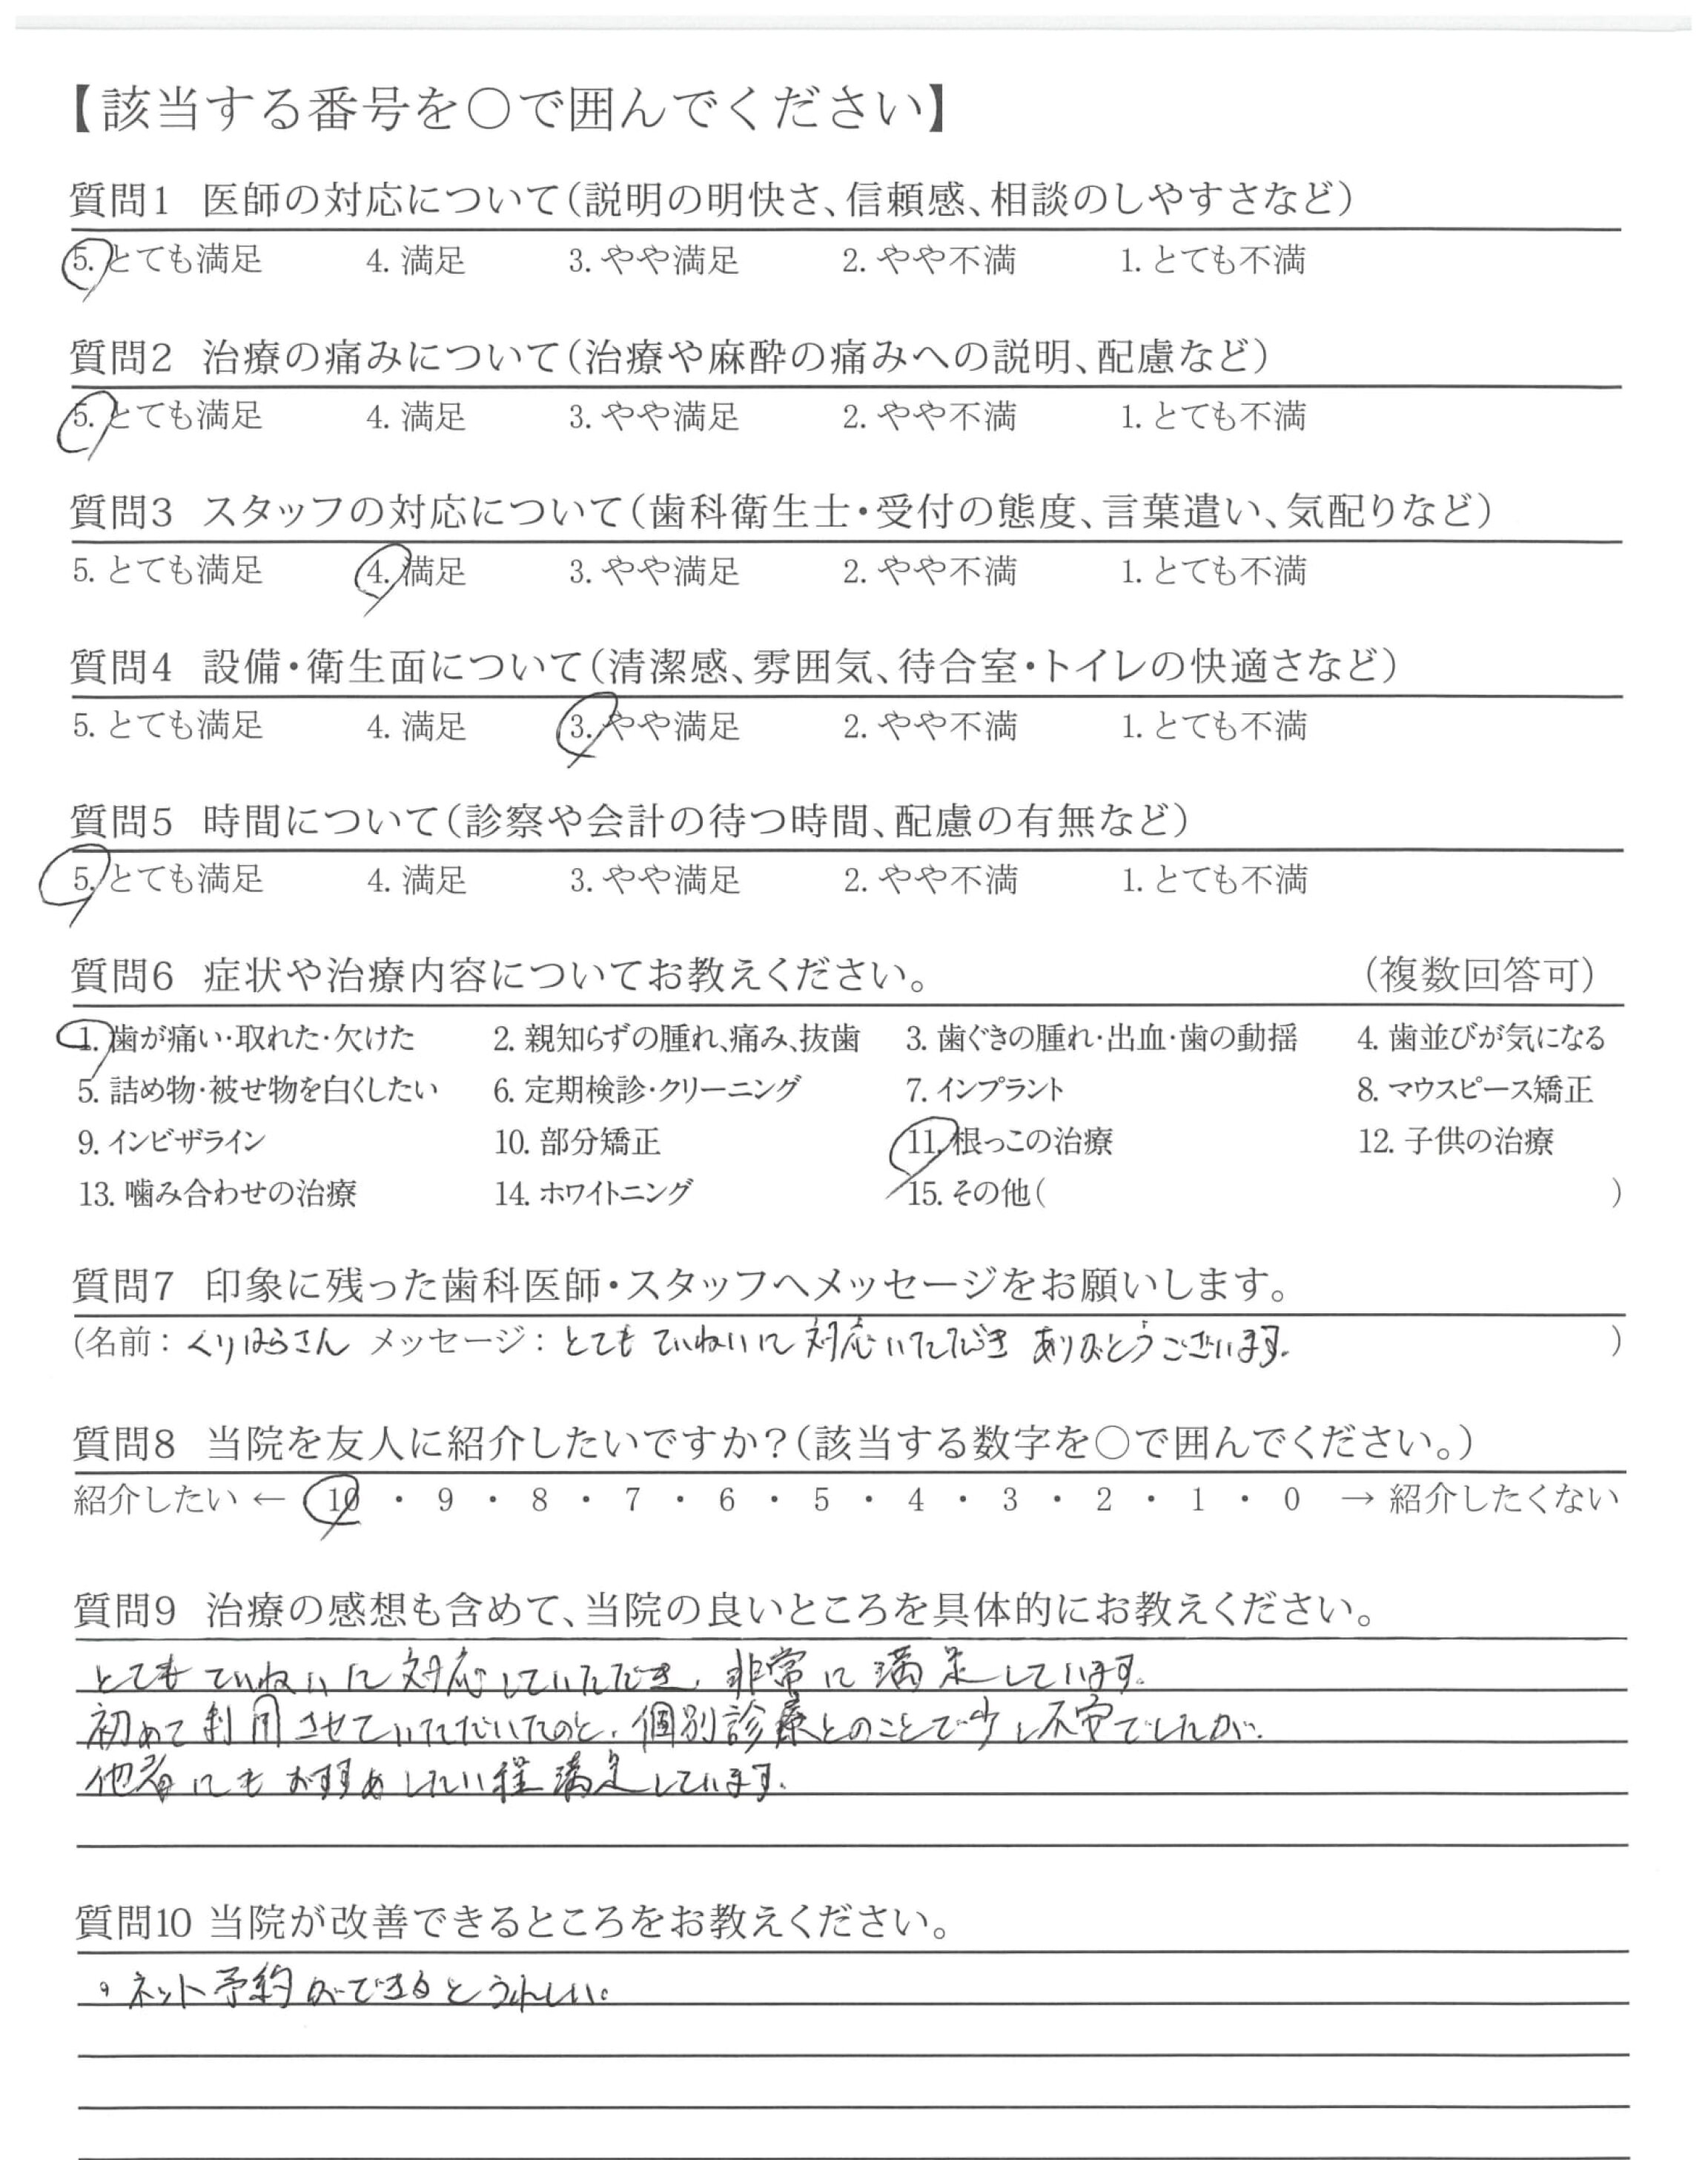 【該当する番号を○で囲んでください】
質問1 医師の対応について(説明の明快さ、信頼感、相談のしやすさなど)
5. とても満足 4. 満足 3. やや満足 2. やや不満 1. とても不満
質問2 治療の痛みについて(治療や麻酔の痛みへの説明、配慮など)
5. とても満足 4. 満足 3. やや満足 2. やや不満 1. とても不満
質問3 スタッフの対応について(歯科衛生士・受付の態度、言葉遣い、気配りなど)
5. とても満足 4. 満足 3. やや満足 2. やや不満 1. とても不満
質問4 設備・衛生面について(清潔感、雰囲気、待合室・トイレの快適さなど)
5. とても満足 4. 満足 3. やや満足 2. やや不満 1. とても不満
質問5 時間について(診察や会計の待つ時間、配慮の有無など)
5. とても満足 4. 満足 3. やや満足 2. やや不満 1. とても不満
質問6 症状や治療内容についてお教えください。 (複数回答可)
1. 歯が痛い・取れた・欠けた 2. 親知らずの腫れ、痛み、抜歯 3. 歯ぐきの腫れ・出血・歯の動揺 4. 歯並びが気になる
5. 詰め物・被せ物を白くしたい 6. 定期検診・クリーニング 7. インプラント 8. マウスピース矯正
9. インビザライン 10. 部分矯正 11. 根っこの治療 12. 子供の治療
13. 噛み合わせの治療 14. ホワイトニング 15. その他( )
質問7 印象に残った歯科医師・スタッフへメッセージをお願いします。
(名前：くりはらさん メッセージ：とても ていねいに 対応いただき ありがとうございます。 )
質問8 当院を友人に紹介したいですか？(該当する数字を○で囲んでください。)
紹介したい ← 10 ・ 9 ・ 8 ・ 7 ・ 6 ・ 5 ・ 4 ・ 3 ・ 2 ・ 1 ・ 0 → 紹介したくない
質問9 治療の感想も含めて、当院の良いところを具体的にお教えください。
とても ていねいに 対応していただき、非常に 満足しています。
初めて利用させていただいたのと、個別診療とのことで少し不安でしたが、
他者にも おすすめしたい程 満足しています。
質問10 当院が改善できるところをお教えください。
・ネット予約ができるとうれしい。